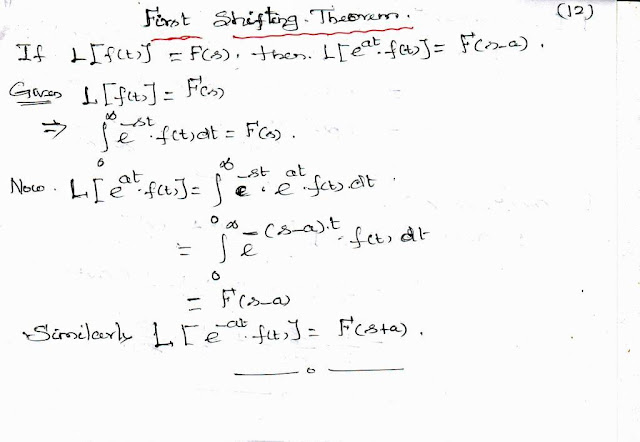 First Shifting Theorem. (12)
If L[f(t)] = F(s), then L[e^{at}.f(t)] = F(s-a).
Given L[f(t)] = F(s)
⇒ ∫_0^∞ e^{-st}.f(t)dt = F(s).
Now. L[e^{at}.f(t)] = ∫_0^∞ e^{-st}.e^{at}.f(t).dt.
= ∫_0^∞ e^{-(s-a).t}.f(t) dt
= F(s-a)
Similarly L[e^{-at}.f(t)] = F(s+a).